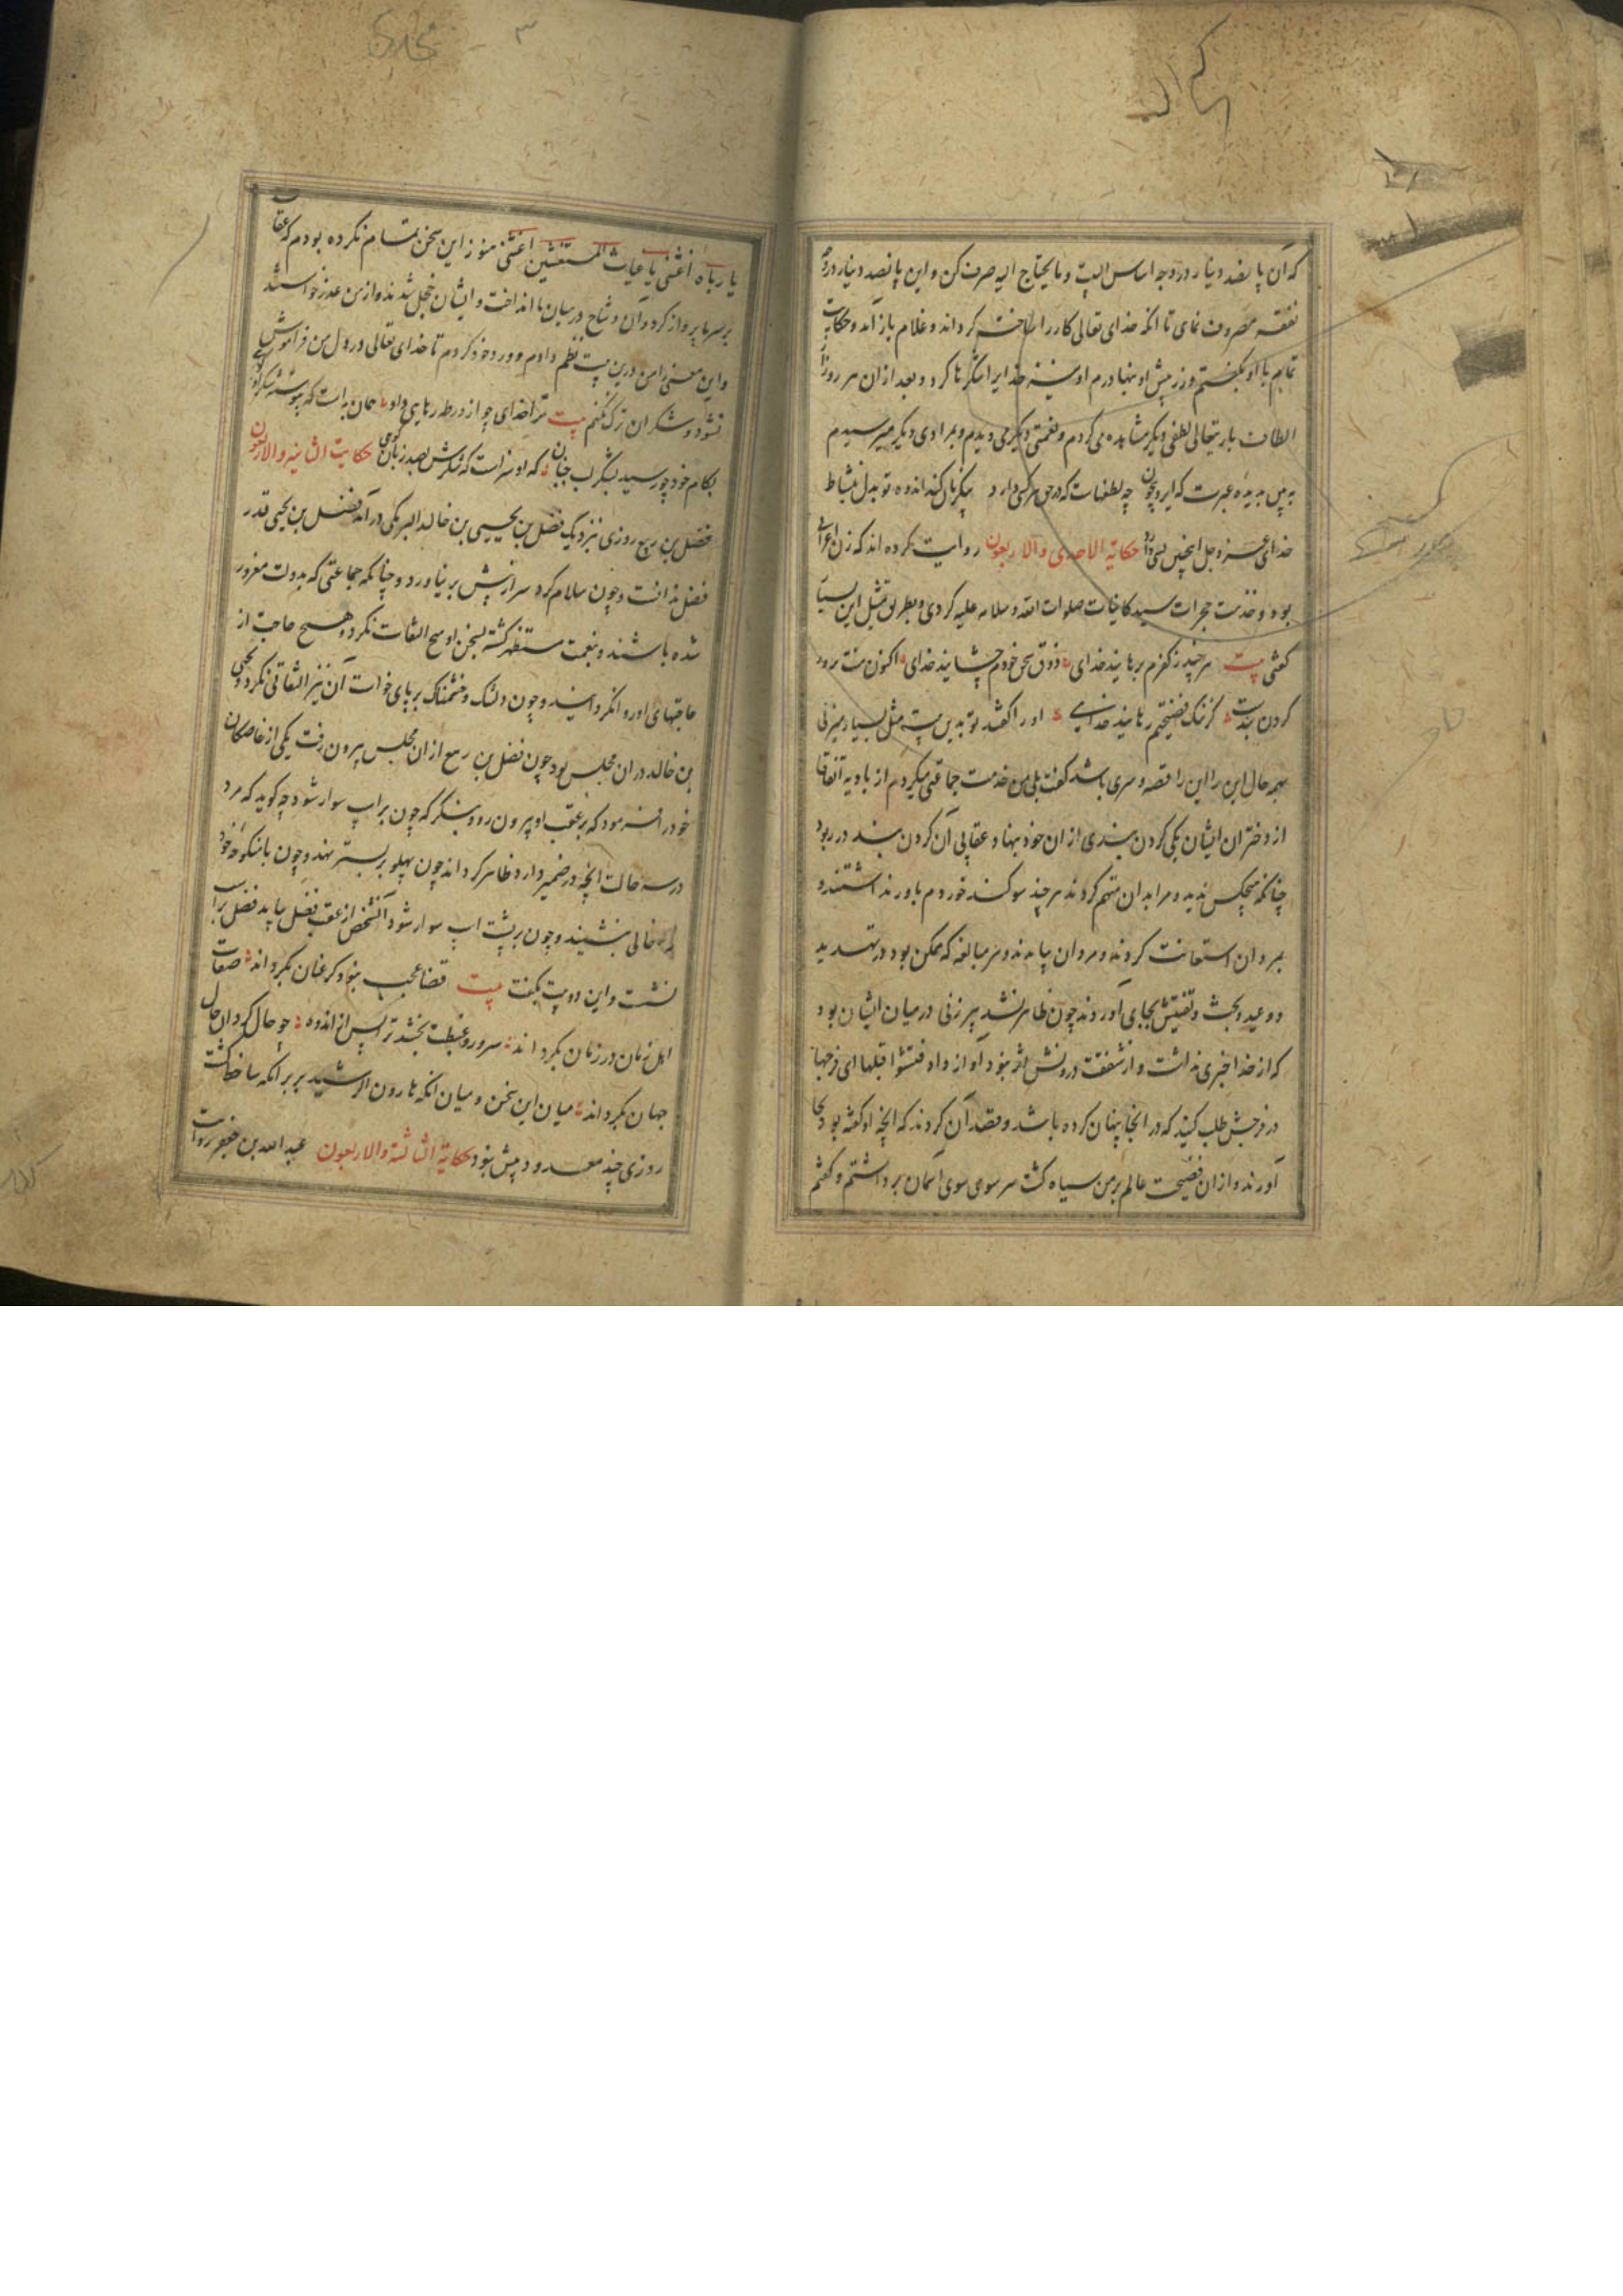 که آن پانصد دینار در وجه اساس البیت و ما یحتاج الیه صرف کن و این پانصد دینار در وجه
نفقه مصروف نمای تا آنکه خدای تعالی کار را ساخته کرداند و غلام باز آمد و حکایت
تمام با او بکفتم و زر پیش او بنهادم او نیز خدایرا شکرها کرد و بعد از آن هر روز از
الطاف باریتعالی لطفی دیکر مشاهده می کردم و نعمتی دیکر می دیدم و بمرادی دیکر میرسیدم
به بین بدیده عبرت که ایزد بیچون چه لطفهاست که در حق هر کسی دارد کند اندوه تو بدل بنشاط
خدای عز و جل اینچنین بسی دارد حکایة الاحدی والاربعون روایت کرده اند که زنی اعرابی
بود و خدمت حجرات سید کاینات صلوات الله و سلامه علیه کردی و بطریق تمثل این بسیار
کفتی بیت هر چند ز کفرم برهانید خدای ذوق سخن خودم چشانید خدای اکنون منت بر
کردن بندست کز ننک فضیحتم رهانید خدای او را کفتند تو بدین بیت مثل بسیار میزنی
همه حال این را قصه و سری باشد کفت بلی من خدمت جماعتی میکردم از بادیه اتفاقا
از دختران ایشان یکی کردن بندی از ان خود بنهاد عقابی آن کردن بند در ربود
چنانکه هیچکس ندید و مرا بدان متهم کردند هر چند سوکند خوردم باور نداشتند و
بمردان استعانت کردند و مردان بیامدند و هر مبالغه که ممکن بود در تهدید
و وعید و بحث و تفتیش بجای آوردند چون ظاهر نشد پیر زنی در میان ایشان بود
که از خدا خبری نداشت و از شفقت درونش اثر نبود آواز داد فتشوا قبلها ای فرجها
در فرجش طلب کنید که در انجا پنهان کرده باشد و قصد آن کردند که آنچه او کفته بود بجا
آورند و از ان فضیحت عالم بر من سیاه کشت سر سوی آسمان برداشتم و کفتم
یا رباه اغثنی یا غیاث المستغیثین اغثنی هنوز این سخن تمام نکرده بودم که عقاب
بر سر ما پرواز کرد و آن وشاح در میان ما انداخت و ایشان خجل شدند و از من عذر خواستند
و این معنی را من درین بیت نظم دادم و ورد خود کردم تا خدای تعالی در دل من فراموش
نشود و شکر ان ترک نکنم بیت ترا خدای چو از ورطه رهایی داد همان به است که پیوسته شکر او
بکام خود چو رسیدی بشکر لب جنبان که او سزاست که شکرش بصد زبان کوئی حکایت الثانیه والاربعون
فضل بن ربیع روزی بنزدیک فضل بن یحیی بن خالد البرمکی در آمد فضل بن یحیی قدر
فضل ندانست و چون سلام کرد سر از پیش بر نیاورد و چنانکه جماعتی که بدولت مغرور
شده باشند و بنعمت مستظهر کشته بسخن او هیچ التفات نکرد و هیچ حاجت از
حاجتهای او روا نکردانید و چون دلتنک و خشمناک بر پای خواست آن نیز التفاتی نکرد و یحیی
بن خالد در ان مجلس بود چون فضل بن ربیع از ان مجلس بیرون رفت یکی از خاصکان
خود را فرمود که بر عقب او بیرون رو و بنکر که چون بر اسب سوار شود چه کوید که مرد
در سه حالت آنچه در ضمیر دارد ظاهر کرداند چون پهلو بر بستر نهد و چون با منکوحه خود
خالی بنشیند و چون بر پشت اسب سوار شود آنشخص از عقب فضل بیامد فضل بر اسب
نشست و این دو بیت بکفت بیت قضا عجب نبود کر عنان بکرداند صفات
اهل زمان در زمان بکرداند سرور و غبطت بخشد ترا پس از اندوه چو حال کردان حال
جهان بکرداند میان این سخن و میان آنکه هارون الرشید بر برامکه ساخط کشت
روزی چند معدود بیش نبود حکایة الثالثة والاربعون عبد الله بن جعفر روایت